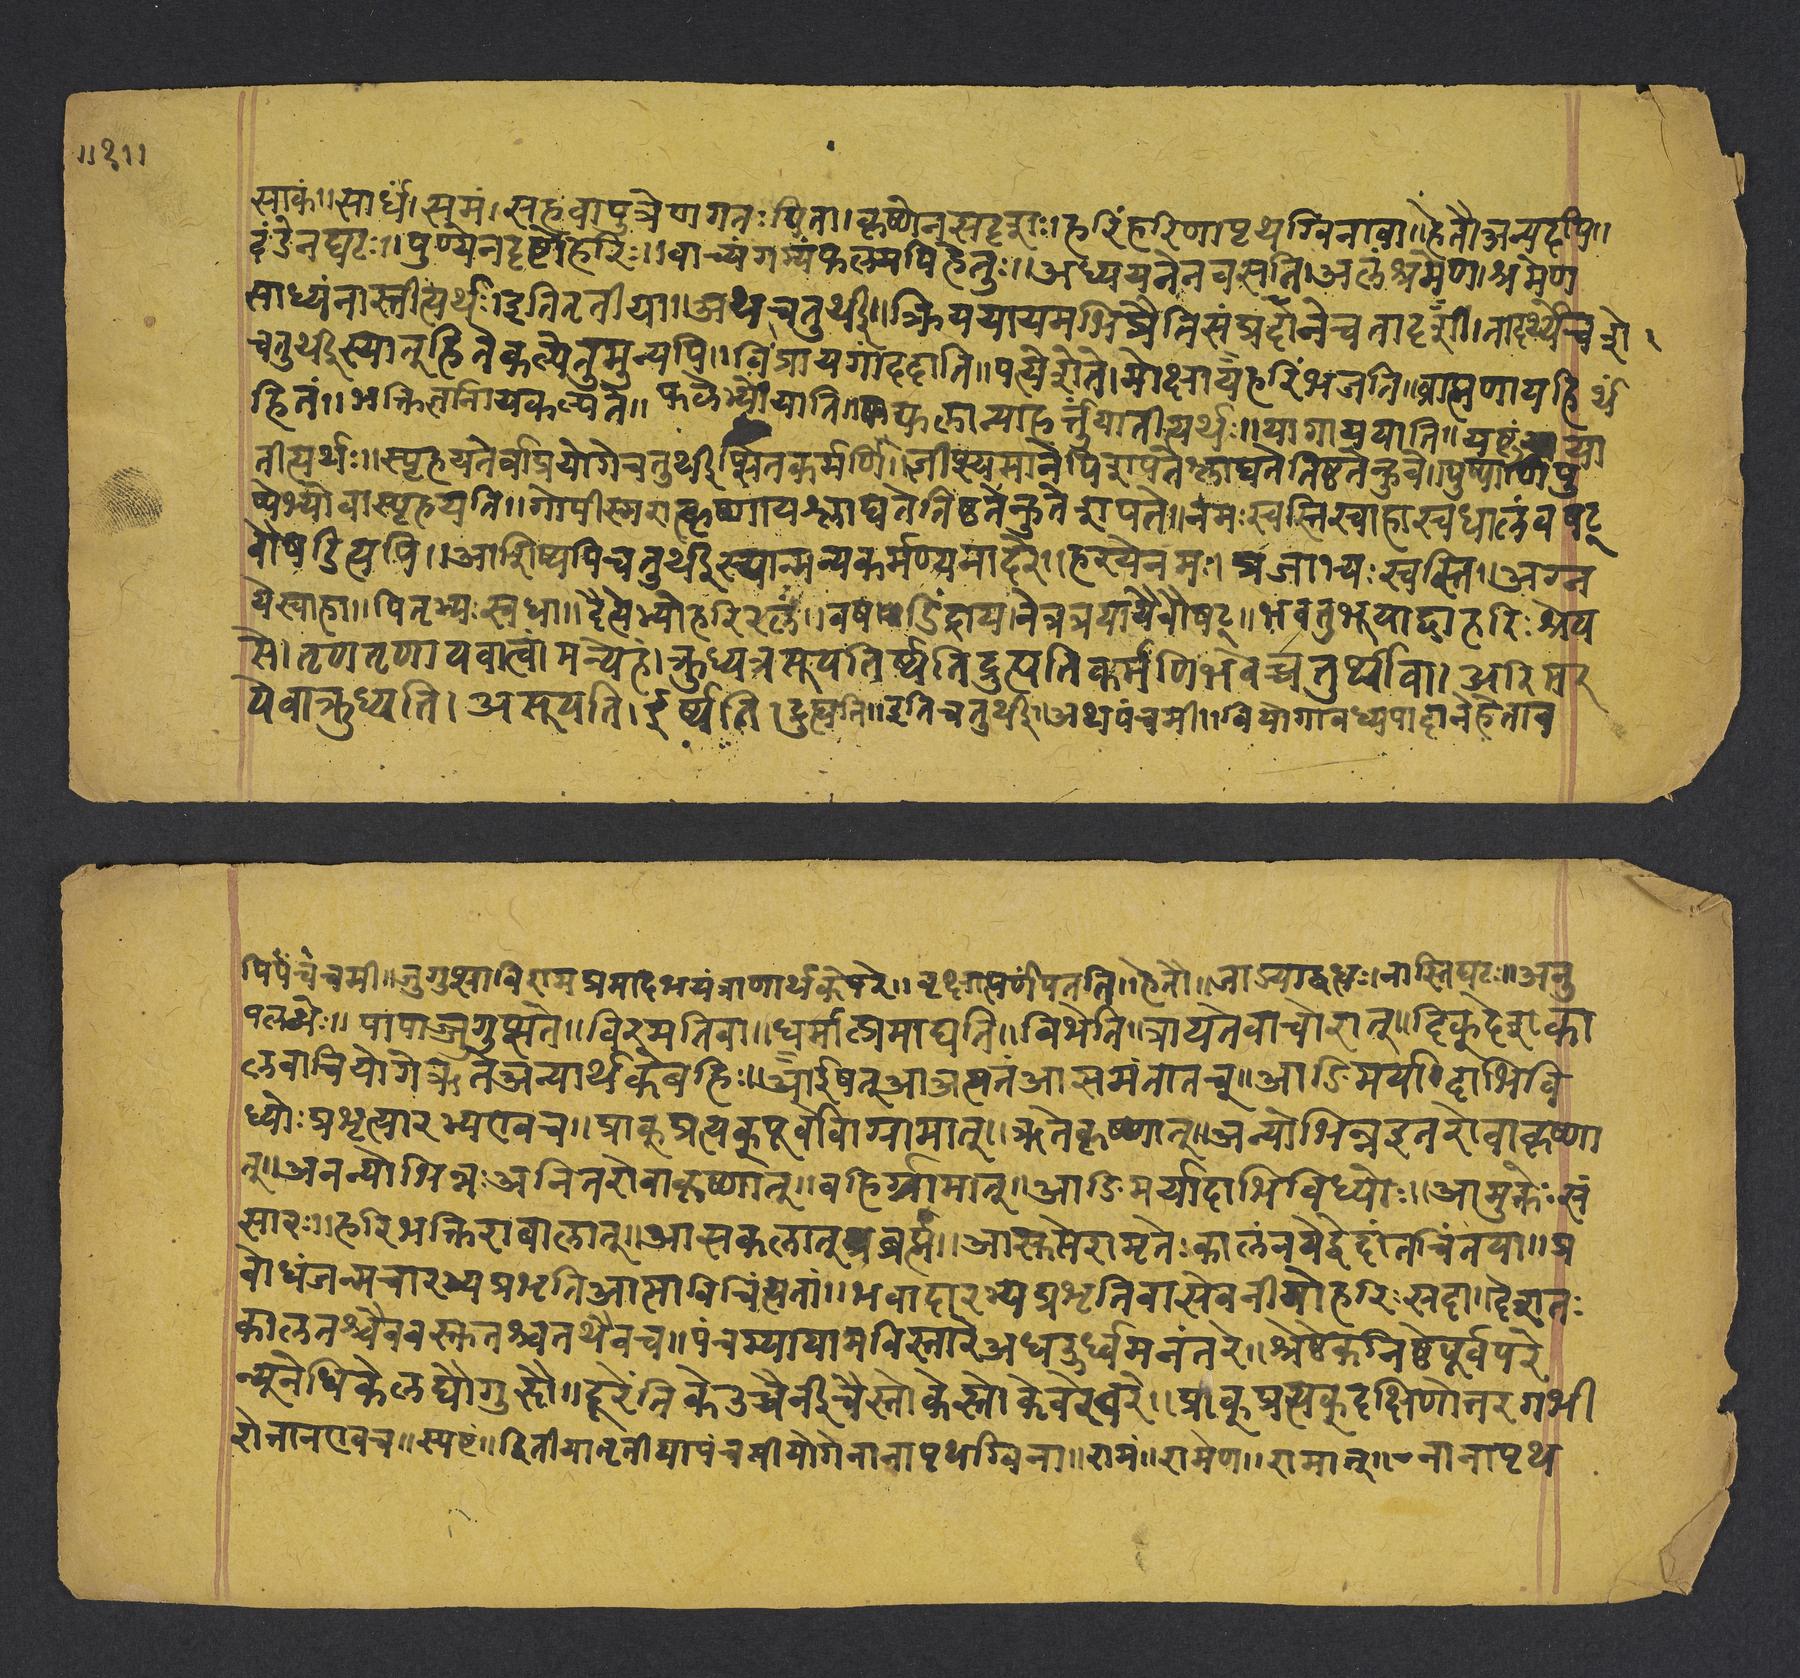 ॥२॥
साकं॥सार्धं।समं।सहवापुत्रेणगतःपिता।कृष्णेनसदृशः।हरिंहरिणापृथग्विनावा॥हेतौअन्यदपि॥
दंडेनघटः॥पुण्येनदृष्टोहरिः॥वाच्यंगम्यंफलमपिहेतुः॥अध्ययनेनवसति।अलंश्रमेण।श्रमेण
साध्यंनास्तीत्यर्थः।इतितृतीया॥अथचतुर्थी॥क्रिययायमभिप्रैतिसंप्रदानेचतादृशी।तादर्थ्येचरो
चतुर्थीस्यात्हितेकल्पेतुमुन्यपि॥विप्रायगांददाति॥पत्येशेते।मोक्षायहरिंभजति॥ब्राह्मणायहि
हितं॥भक्तिर्ज्ञानायकल्पते॥फलेभ्योयाति॥फलान्याहर्त्तुंयातीत्यर्थः॥यागाययाति॥यष्टुंया
तीत्यर्थः॥स्पृहयतेर्वाप्रयोगेचतुर्थीप्सितकर्मणि॥ज्ञीप्स्यमानेपिशपतेश्लाघतेतिष्ठतेन्हुवे॥पुष्पाणिपु
ष्पेभ्योवास्पृहयति॥गोपीस्मरात्कृष्णायश्लाघतेतिष्ठतेन्हुतेशपते॥नमःस्वस्तिस्वाहास्वधालंवषट्
वौषडित्यपि॥आशिष्यपिचतुर्थीस्यान्मन्यकर्मण्यमादरे॥हरयेनमः।प्रजाभ्यःस्वस्ति॥अग्न
येस्वाहा॥पितृभ्यःस्वधा॥दैत्येभ्योहरिरलं॥वषडिंद्राय।नेत्रत्रयायवौषट्॥भवतुभूयाद्वाहरिःश्रेय
से।तृणंतृणायवात्वांमन्येहं।क्रुध्यत्रसूयतिर्ष्यतिद्रुह्यतिकर्मणिभवेच्चतुर्थीवा।अरिमर
येवाक्रुध्यति।असूयति।ईर्ष्यति।द्रुह्यति॥इतिचतुर्थी।अथपंचमी॥वियोगावध्यपादानेहेताव
पिपंचमी॥जुगुप्साविरामप्रमादभयंत्राणार्थकेपरे॥वृक्षात्पर्णंपतति॥हेतौ॥जाड्याद्बद्धः।नास्तिघटः॥अनु
पलब्धेः॥पापाज्जुगुप्सते॥विरमतिवा॥धर्मात्प्रमाद्यति॥बिभेति॥त्रायतेवाचोरात्॥दिक्देशका
लेवाचियोगेऋतेअन्यार्थकेबहिः॥आईषत्आअत्यनंआसमंतातच्॥आङिमर्यादाभिवि
ध्योःप्रभृत्यारभ्यएवच॥प्राक्प्रत्यक्पूर्वोवाग्रामात्॥ऋतेकृष्णात्॥अन्योभिन्नइतरोवाकृष्णा
त्॥अनन्योभिन्नःअनितरोवाकृष्णात्॥बहिर्ग्रामात्॥आङिमर्यादाभिविध्योः॥आमुक्तेःसं
सारः॥हरिभक्तिराबालात्॥आसकलात्ब्रह्म॥आसुप्तेरामृतेःकालंनयेद्वेदांतचिंतया॥प्र
बोधंजन्मचारभ्यप्रभृतिआत्माविचिंत्यतां॥भवादारभ्यप्रभृतिवासेवनीयोहरिःसदा॥देशतः
कालतश्चैववस्तुतश्चतथैवच॥पंचम्यायामविस्तारेअधउर्ध्वमनंतरे॥श्रेष्ठेकनिष्ठेपूर्वपरे
न्यूनेधिकेलघौगुरौ॥दूरेंतिकेउच्चैर्नीचैस्तोकेस्तोकेवरेखरे॥प्राक्प्रत्यक्दक्षिणोत्तरगभी
रोत्तानएवच॥स्पष्टं॥द्वितीयातृतीयापंचमीयोगेनानापृथग्विना॥रामं॥रामेण॥रामात्॥नानापृथ